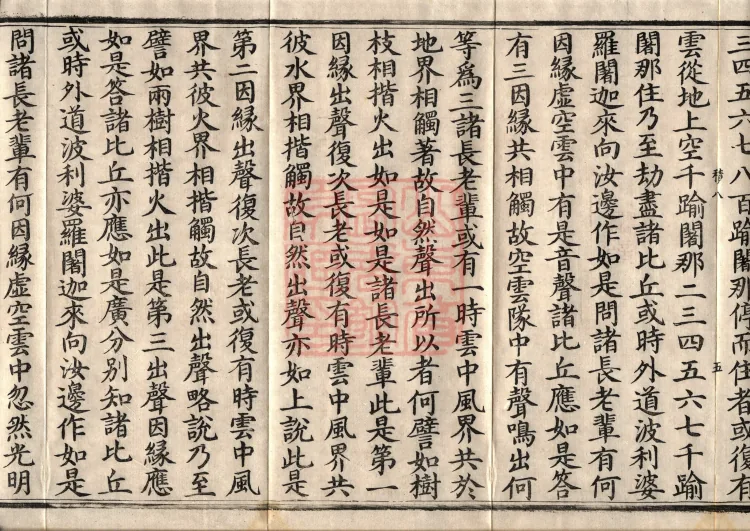 三四五六七八百踰闍那停而住者或復有
雲從地上空千踰闍那二三四五六七千踰
闍那住乃至劫盡諸比丘或時外道波利婆
羅闍迦來向汝邊作如是問諸長老輩有何
因縁虛空雲中有是音聲諸比丘應如是答
有三因縁共相觸故空雲隊中有聲鳴出何
等爲三諸長老輩或有一時雲中風界共於
地界相觸著故自然聲出所以者何譬如樹
枝相揩火出如是如是諸長老輩此是第一
因縁出聲復次長老或復有時雲中風界共
彼水界相揩觸故自然出聲亦如上說此是
第二因縁出聲復次長老或復有時雲中風
界共彼火界相揩觸故自然出聲略說乃至
譬如兩樹相揩火出此是第三出聲因縁應
如是答諸比丘亦應如是廣分別知諸比丘
或時外道波利婆羅闍迦來向汝邊作如是
問諸長老輩有何因縁虛空雲中忽然光明
五